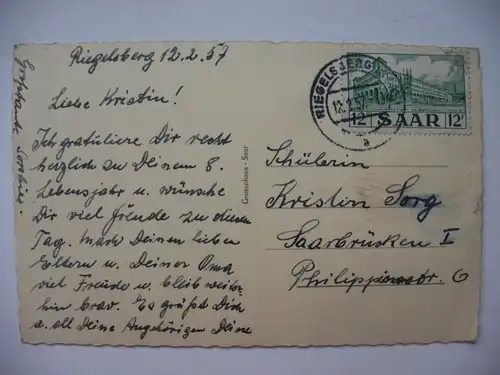 Riegelsberg 12.2.57
Liebe Kristin!
Ich gratuliere Dir recht
herzlich zu Deinem 8.
Lebensjahr u. wünsche
Dir viel Freude zu diesem
Tag. Mach Deinen lieben
Eltern u. Deiner Oma
viel Freude u. bleib weiter-
hin brav. Es grüßt Dich
u. all Deine Angehörigen Deine
Grosshaus - Saar
RIEGELSBERG
12.2.57
a
12F SAAR 12F
Schülerin
Kristin Sorg
Saarbrücken I
Philippinenstr. 6